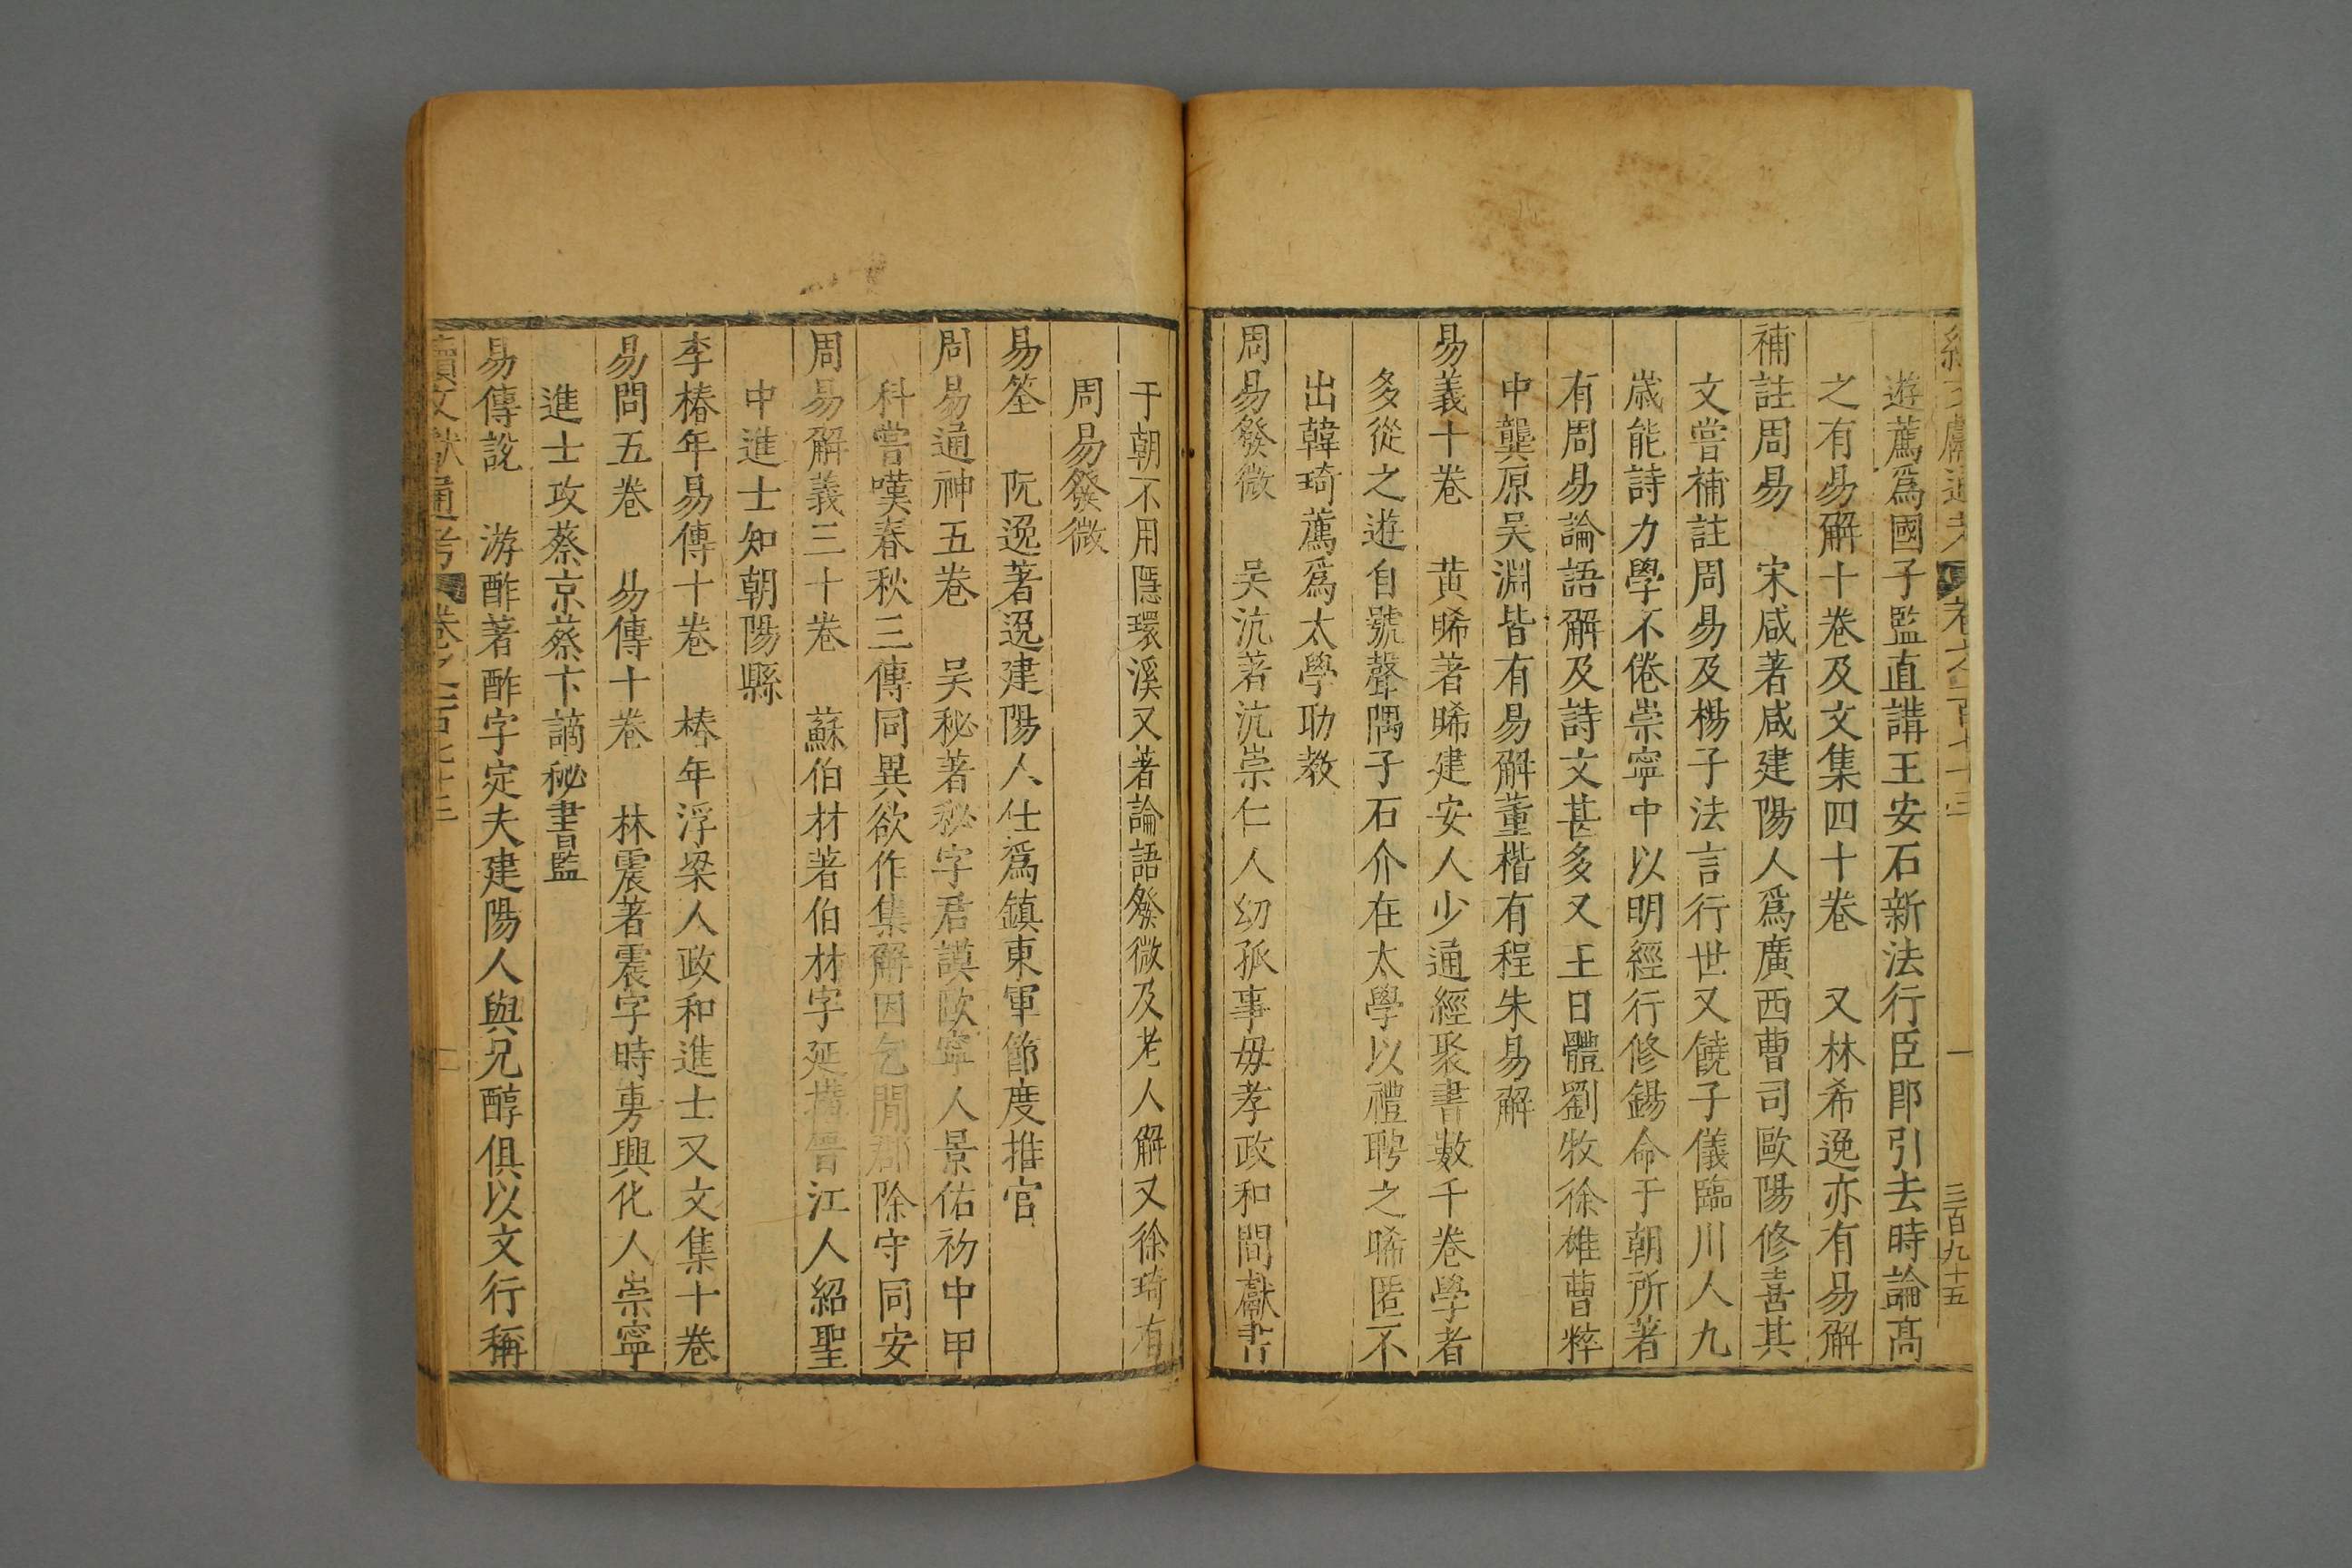 遊薦爲國子監直講王安石新法行臣郎引去時論髙
之有易解十卷及文集四十卷　又林希逸亦有易解
補註周易　宋咸著咸建陽人爲廣西曹司歐陽修喜其
文嘗補註周易及楊子法言行世又饒子儀臨川人九
歳能詩力學不倦崇寧中以明經行修錫命于朝所著
有周易論語解及詩文甚多又王日體劉牧徐雄曹粹
中龔原吴淵皆有易解董楷有程朱易解
易義十卷　黄晞著晞建安人少通經聚書數千卷學者
多從之遊自號聱隅子石介在太學以禮聘之晞匿不
出韓琦薦爲太學助教
周易發微　吴沆著沆崇仁人幼孤事毋孝政和間獻書
于朝不用隱環溪又著論語發微及老人解又徐琦有
周易發微
易筌　阮逸著逸建陽人仕爲鎮東軍節度推官
周易通神五卷　吴秘著秘字君謨歐寧人景佑初中甲
科嘗嘆春秋三傳同異欲作集解因乞閒郡除守同安
周易解義三十卷　蘇伯材著伯材字延　晉江人紹聖
中進士知朝陽縣
李椿年易傳十卷　椿年浮梁人政和進士又文集十卷
易問五卷　易傳十卷　林震著震字時旉興化人崇寧
進士攻蔡京蔡卞謫秘書監
易傳說　游酢著酢字定夫建陽人與兄醇俱以文行稱
續文獻通考　卷之一百七十三